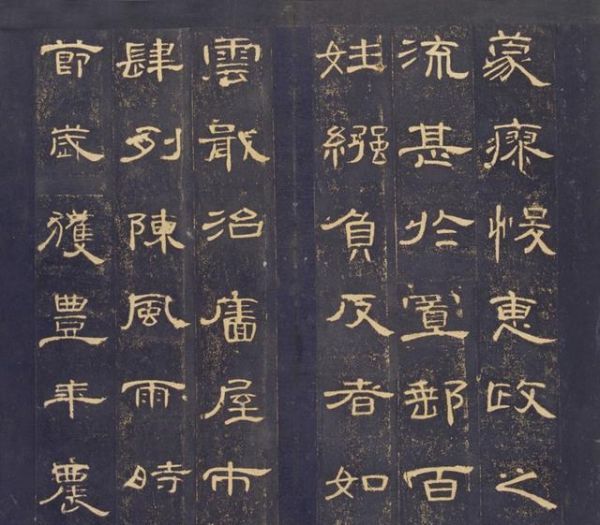 蒙瘳悞惠政之
流甚於置郵百
姓繦負反者如
雲戢治廧屋市
肆列陳風雨時
節歲獲豐年農